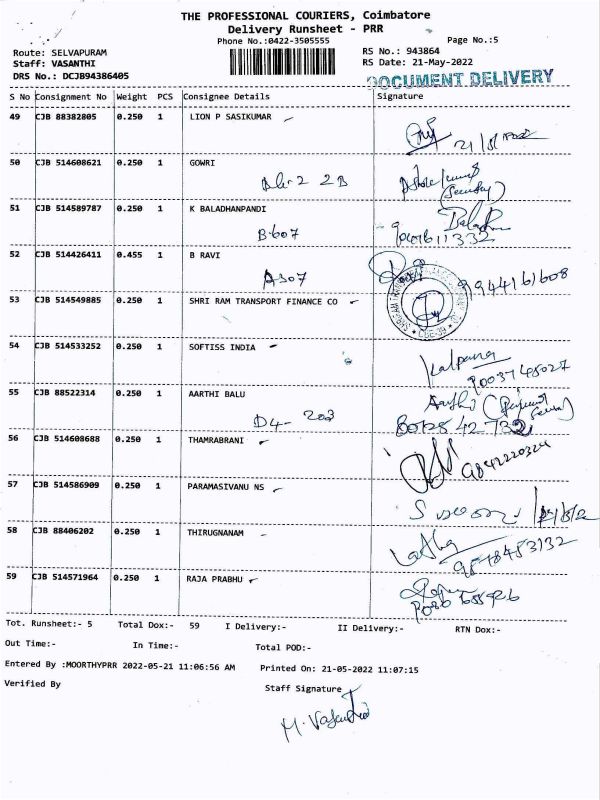 THE PROFESSIONAL COURIERS, Coimbatore
Delivery Runsheet - PRR
Phone No.:0422-3505555
Page No.:5
Route: SELVAPURAM
RS No.: 943864
Staff: VASANTHI
RS Date: 21-May-2022
DRS No.: DCJB94386405
DOCUMENT DELIVERY
S No Consignment No Weight PCS Consignee Details Signature
49 CJB 88382805 0.250 1 LION P SASIKUMAR
50 CJB 514608621 0.250 1 GOWRI
2B
51 CJB 514589787 0.250 1 K BALADHANPANDI
B-607
52 CJB 514426411 0.455 1 B RAVI
A307 9944161608
53 CJB 514549885 0.250 1 SHRI RAM TRANSPORT FINANCE CO
54 CJB 514533252 0.250 1 SOFTISS INDIA
Kalpana
55 CJB 88522314 0.250 1 AARTHI BALU
D4- 203
56 CJB 514608688 0.250 1 THAMRABRANI
9842220324
57 CJB 514586909 0.250 1 PARAMASIVANU NS
58 CJB 88406202 0.250 1 THIRUGNANAM
Latha
59 CJB 514571964 0.250 1 RAJA PRABHU
Tot. Runsheet:- 5 Total Dox:- 59 I Delivery:- II Delivery:- RTN Dox:-
Out Time:- In Time:- Total POD:-
Entered By :MOORTHYPRR 2022-05-21 11:06:56 AM Printed On: 21-05-2022 11:07:15
Verified By Staff Signature